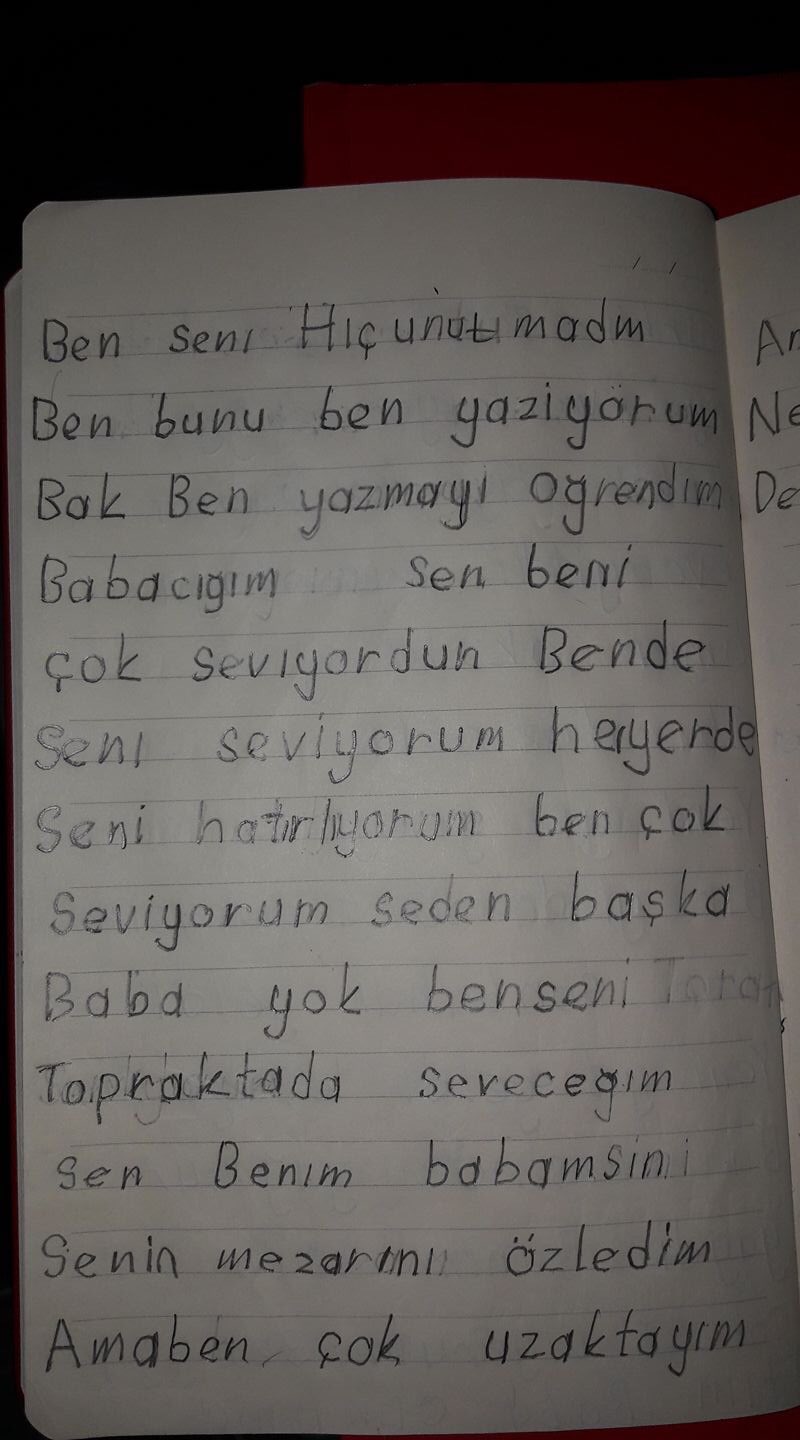 Ben seni Hiç unutmadm
Ben bunu ben yaziyorum Ne
Bak Ben yazmayi öğrendim De
Babacığım sen beni
çok seviyordun Bende
Seni seviyorum heryerde
Seni hatırlıyorum ben çok
Seviyorum seden başka
Baba yok benseni
Topraktada sevecegim
Sen Benim babamsin
Senin mezarını özledim
Amaben çok uzaktayım